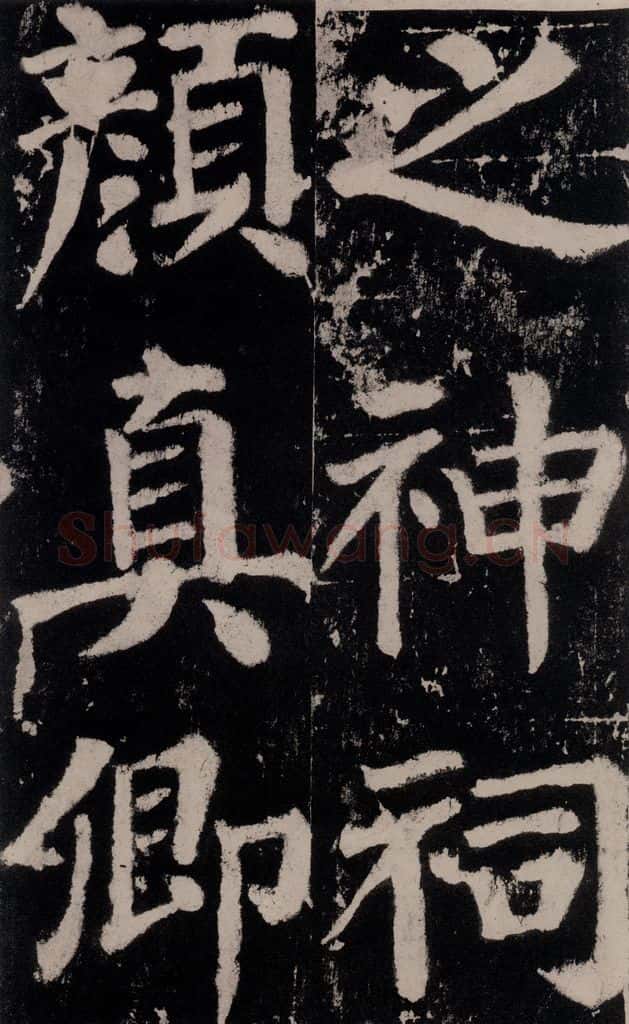 之神祠
顏真卿
Shufawang.CN